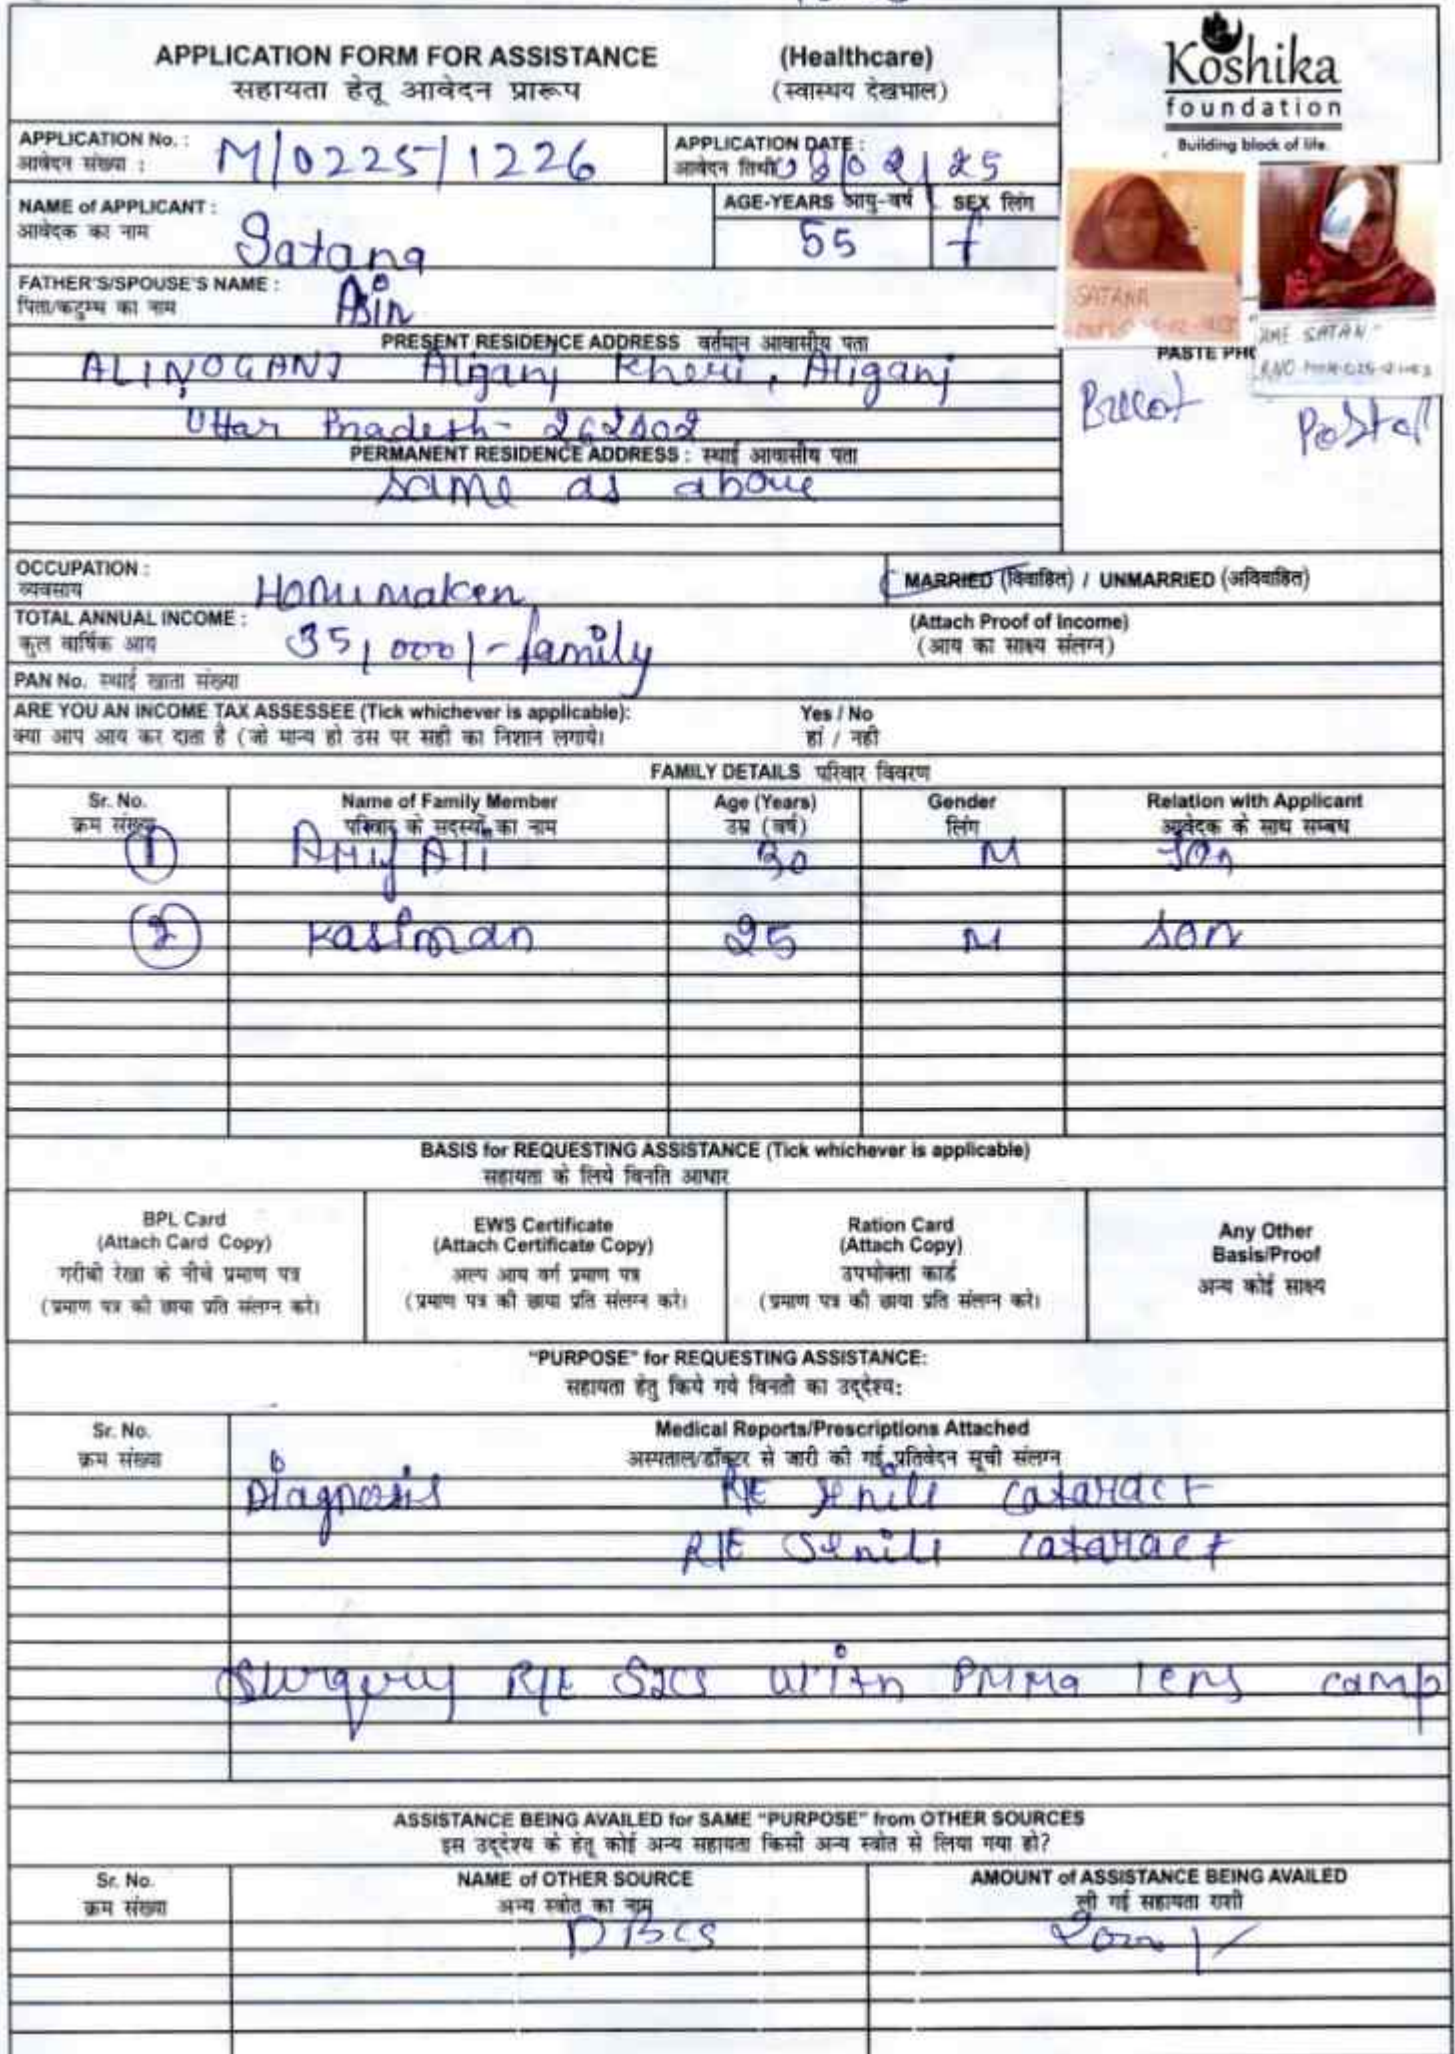 APPLICATION FORM FOR ASSISTANCE (Healthcare)
सहायता हेतू आवेदन प्रारूप (स्वास्थय देखभाल)
Koshika
foundation
Building block of life.
APPLICATION No. : M/0225/1226
आवेदन संख्या :
APPLICATION DATE :
आवेदन तिथी 08/02/25
NAME of APPLICANT :
आवेदक का नाम Satana
AGE-YEARS आयु-वर्ष SEX लिंग
55 f
FATHER'S/SPOUSE'S NAME :
पिता/कटुम्ब का नाम Asin
SATANA
PRESENT RESIDENCE ADDRESS वर्तमान आवासीय पता
ALINOGANJ Alganj Kheri, Aliganj
Uttar Pradesh-262802
PASTE PHO
Preop Postop
PERMANENT RESIDENCE ADDRESS : स्थाई आवासीय पता
same as above
OCCUPATION :
व्यवसाय
MARRIED (विवाहित) / UNMARRIED (अविवाहित)
TOTAL ANNUAL INCOME : 35,000/-family
कुल वार्षिक आय
(Attach Proof of Income)
(आय का साक्ष्य संलग्न)
PAN No. स्थाई खाता संख्या
ARE YOU AN INCOME TAX ASSESSEE (Tick whichever is applicable): Yes / No
क्या आप आय कर दाता है (जो मान्य हो उस पर सही का निशान लगाये। हां / नही
FAMILY DETAILS परिवार विवरण
Sr. No. Name of Family Member Age (Years) Gender Relation with Applicant
क्रम संख्या परिवार के सदस्यों का नाम उम्र (वर्ष) लिंग आवेदक के साथ सम्बध
1 Ali 30 M son
2 Kasiman 25 M son
BASIS for REQUESTING ASSISTANCE (Tick whichever is applicable)
सहायता के लिये विनति आधार
BPL Card
(Attach Card Copy)
गरीबी रेखा के नीचे प्रमाण पत्र
(प्रमाण पत्र की छाया प्रति संलग्न करे।
EWS Certificate
(Attach Certificate Copy)
अल्प आय वर्ग प्रमाण पत्र
(प्रमाण पत्र की छाया प्रति संलग्न करे।
Ration Card
(Attach Copy)
उपभोक्ता कार्ड
(प्रमाण पत्र की छाया प्रति संलग्न करे।
Any Other
Basis/Proof
अन्य कोई साक्ष्य
"PURPOSE" for REQUESTING ASSISTANCE:
सहायता हेतु किये गये विनती का उद्देश्य:
Sr. No. Medical Reports/Prescriptions Attached
क्रम संख्या अस्पताल/डॉक्टर से जारी की गई प्रतिवेदन सूची संलग्न
Diagnosis R/E Senile cataract
R/E Senile cataract
Surgery R/E SICS with PMMA lens camp
ASSISTANCE BEING AVAILED for SAME "PURPOSE" from OTHER SOURCES
इस उद्देश्य के हेतू कोई अन्य सहायता किसी अन्य स्त्रोत से लिया गया हो?
Sr. No. NAME of OTHER SOURCE AMOUNT of ASSISTANCE BEING AVAILED
क्रम संख्या अन्य स्त्रोत का नाम ली गई सहायता राशी
DBCS 2000/-